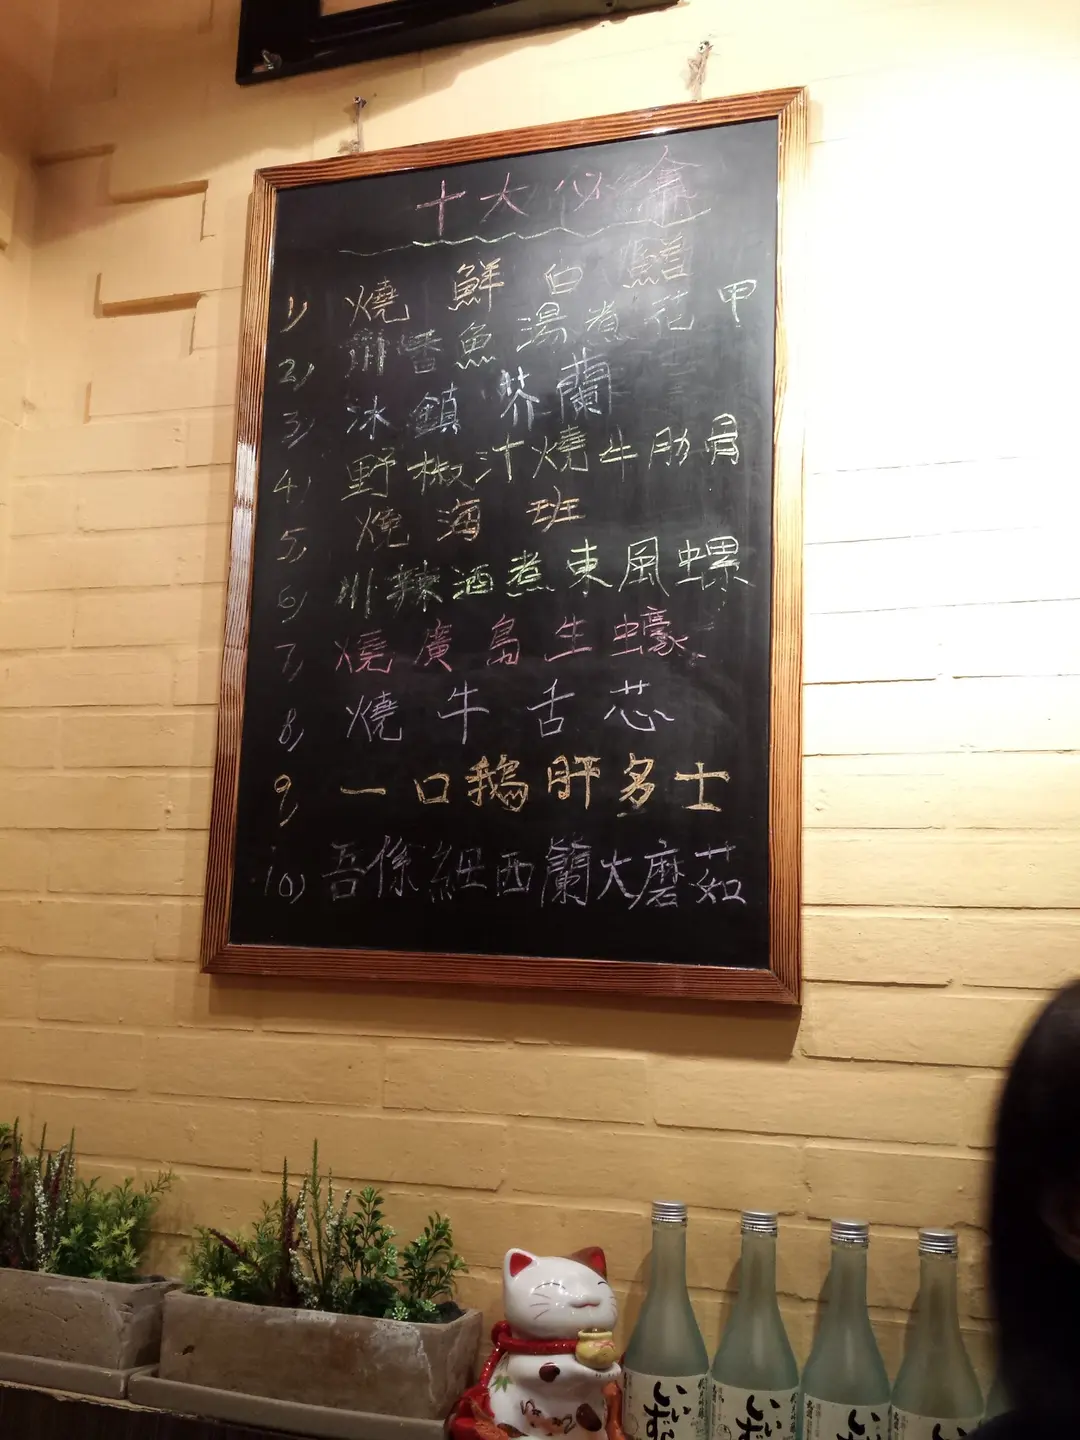 十大必食
1) 燒鮮白鱔
2) 魚湯煮花甲
3) 冰鎮芥蘭
4) 野椒汁燒牛肋骨
5) 燒海班
6) 川辣酒煮東風螺
7) 燒廣島生蠔
8) 燒牛舌芯
9) 一口鵝肝多士
10) 吾係細西蘭大磨菇